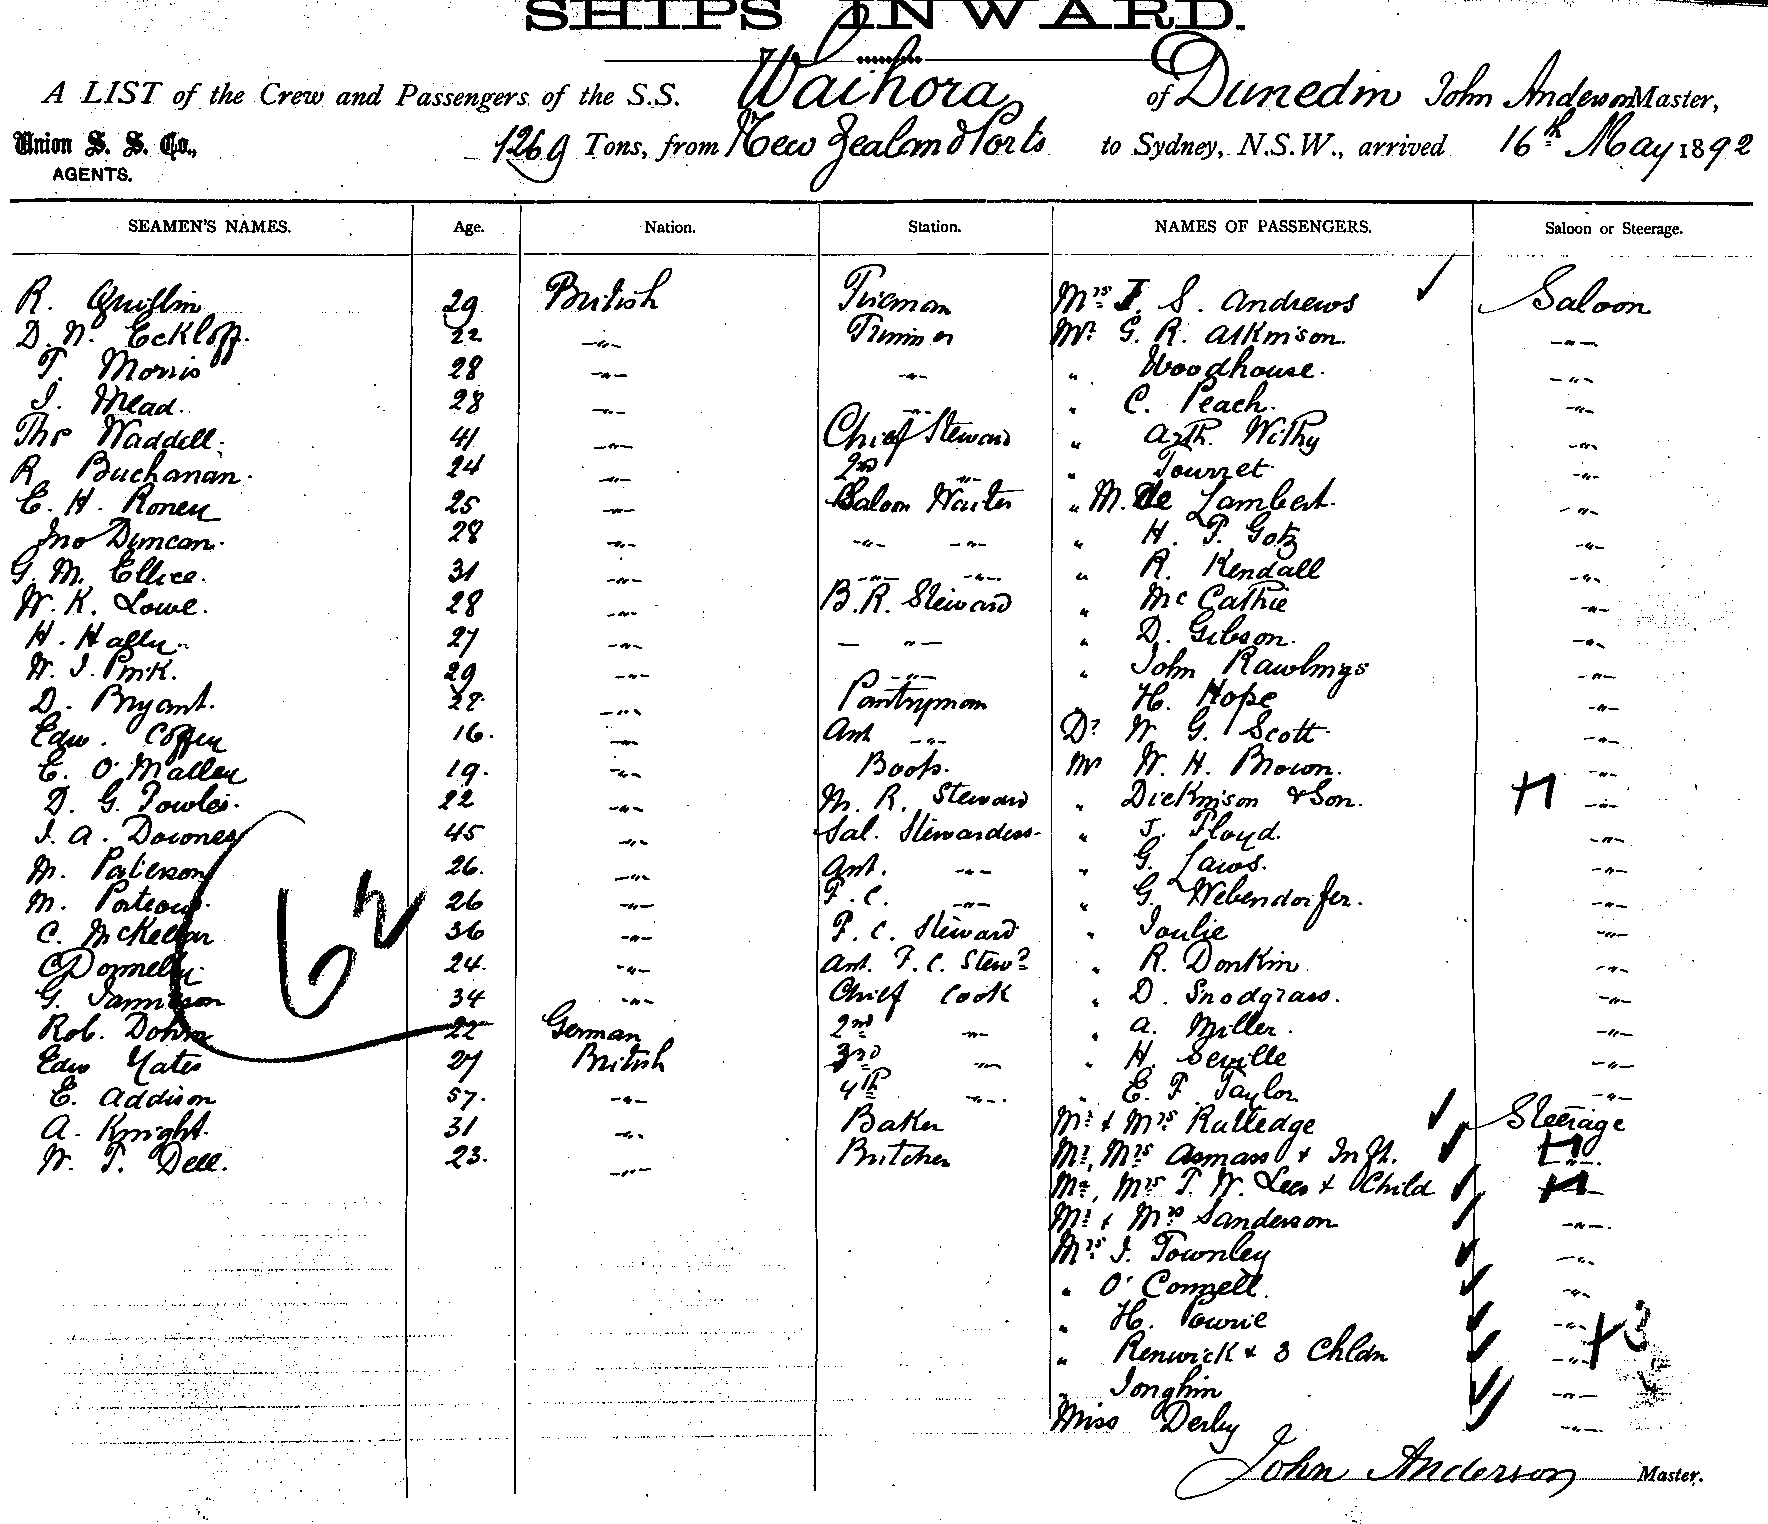 SHIPS INWARD.
A LIST of the Crew and Passengers of the S.S. Waihora of Dunedin John Anderson Master,
Union S. S. Co., 1269 Tons, from New Zealand Ports to Sydney, N.S.W., arrived 16th May 1892
AGENTS.
SEAMEN'S NAMES. Age. Nation. Station. NAMES OF PASSENGERS. Saloon or Steerage.
R. Quillin 29 British Fireman Mrs J. S. Andrews ✓ Saloon
D. N. Eckloff. 22 -"- Trimmer Mr G. R. Atkinson. -"-
T. Morris 28 -"- -"- " Woodhouse. -"-
J. Mead. 28 -"- -"- " C. Peach. -"-
Thos Waddell. 41 -"- Chief Steward " Arth. Withy -"-
R Buchanan. 24 -"- 2nd -"- " Tourret -"-
E. H. Roney 25 -"- Saloon Waiter " M. de Lambert. -"-
Jno Duncan. 28 -"- -"- -"- " H. P. Gotz -"-
G. M. Ellice. 31 -"- -"- -"- " R. Kendall -"-
W. K. Lowe. 28 -"- B. R. Steward " McCathie -"-
H. Hally. 27 -"- - "- " D. Gibson. -"-
W. J. Pink. 29 -"- -"- " John Rawlings -"-
D. Bryant. 22 -"- Pantryman " H. Hope -"-
Edw. Coffey 16. -"- Ant -"- Dr W. G. Scott -"-
E. O'Malley 19. -"- Boots. Mr W. H. Brown. -"-
D. G. Towles. 22 -"- M. R. Steward " Dickinson & Son. +1 -"-
J. A. Downes 45 -"- Sal. Stewardess " J. Floyd. -"-
M. Paterson 26. -"- Ant. -"- " G. Laws. -"-
M. Porteous. 26 -"- F. C. -"- " G. Webendorfer. -"-
C. McKellar 36 -"- F. C. Steward " Joulie -"-
C Donnelly. 24. -"- Ant. F. C. Stewd " R. Donkin -"-
G. Jamieson 34 -"- Chief Cook " D. Snodgrass. -"-
Rob. Dohm 22 German 2nd -"- " A. Miller. -"-
Edw Yates 27 British 3rd -"- " H. Seville -"-
E. Addison 57. -"- 4th -"- " E. F. Taylor -"-
A. Knight. 31 -"- Baker Mr & Mrs Rutledge ✓ Steerage
W. T. Dell. 23. -"- Butcher Mr, Mrs Asmass & Inft. ✓ +1 -"-
Mr, Mrs T. W. Lees & Child ✓ +1 -"-
Mr & Mrs Sanderson ✓ -"-
Mrs J. Townley ✓ -"-
" O'Connell. ✓ -"-
" H. Powrie ✓ -"-
" Renwick & 3 Chldn ✓ -"- +3
" Jonghin ✓ -"-
Miss Derby ✓ -"-
John Anderson Master.